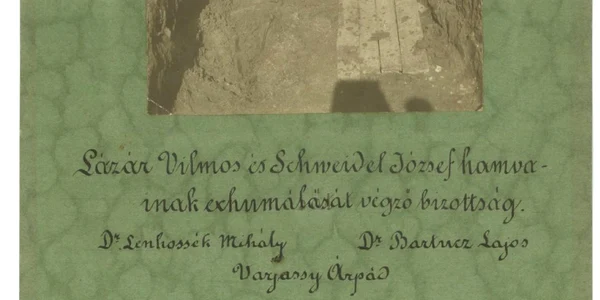 Lázár Vilmos és Schweidel József hamva-
inak exhumálását végző bizottság.
Dr. Lenhossék Mihály Dr Bartucz Lajos
Varjassy Árpád